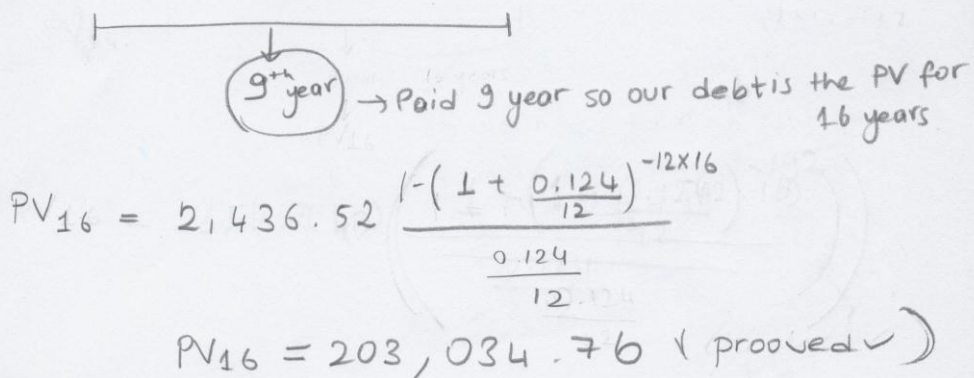 9th year → Paid 9 year so our debt is the PV for
16 years
PV16 = 2,436.52 (1-(1 + 0.124/12)^-12×16)/(0.124/12)
PV16 = 203,034.76 (prooved✓)